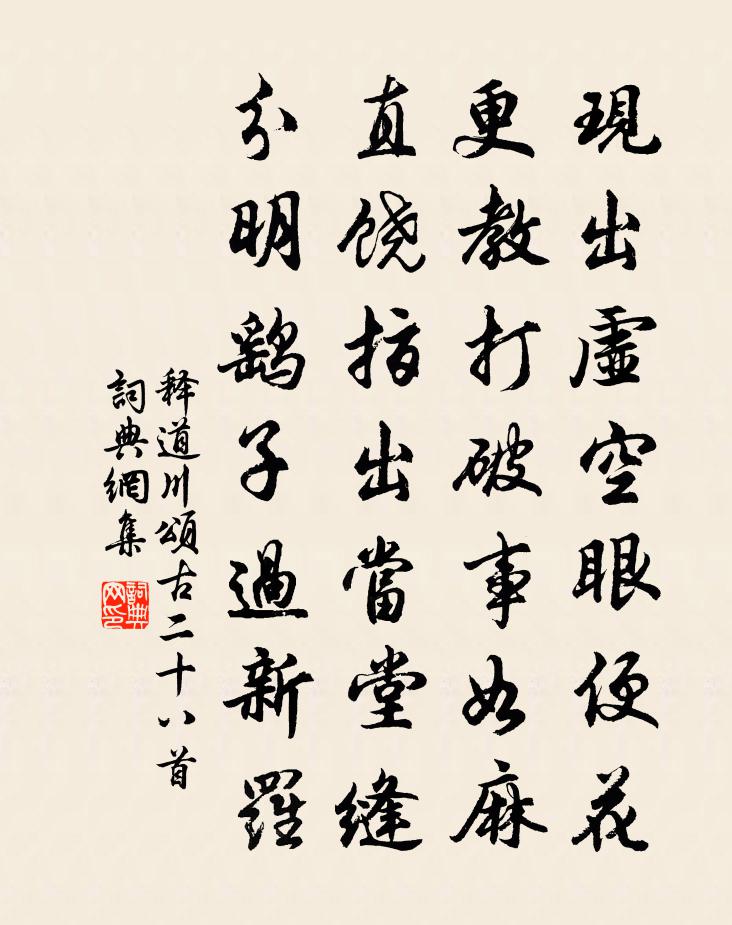 現出虛空眼便花
更教打破事如麻
直饶指出當堂縫
分明鷂子過新羅
释道川頌古二十八首
詞典網集
詞典网印